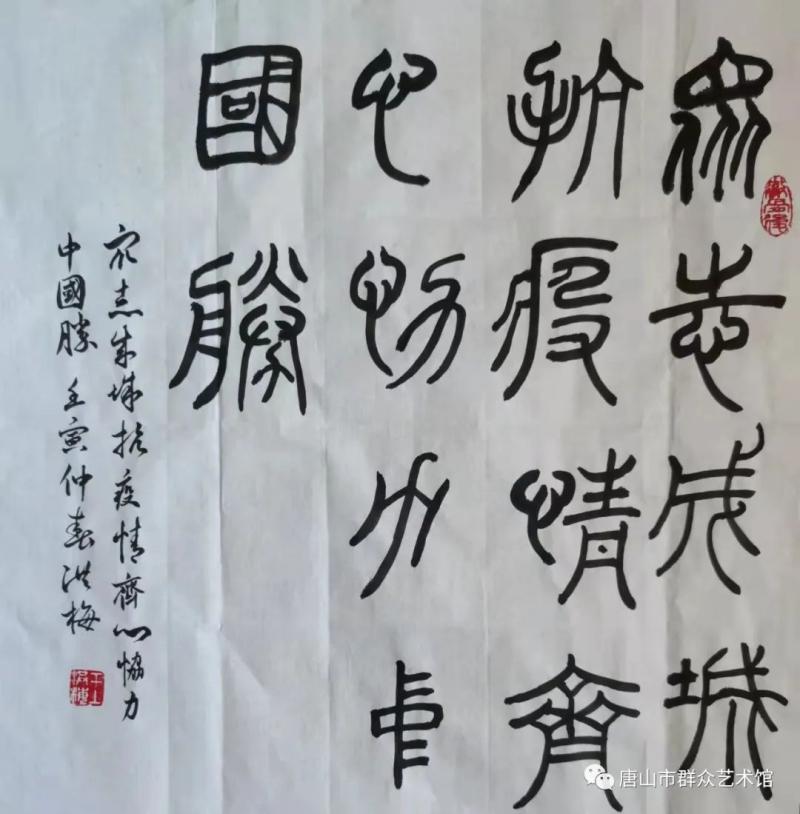 众志成城
抗疫情齐
心协力中
國勝
众志成城抗疫情齊心協力
中國勝 壬寅仲春洪梅
唐山市群众艺术馆